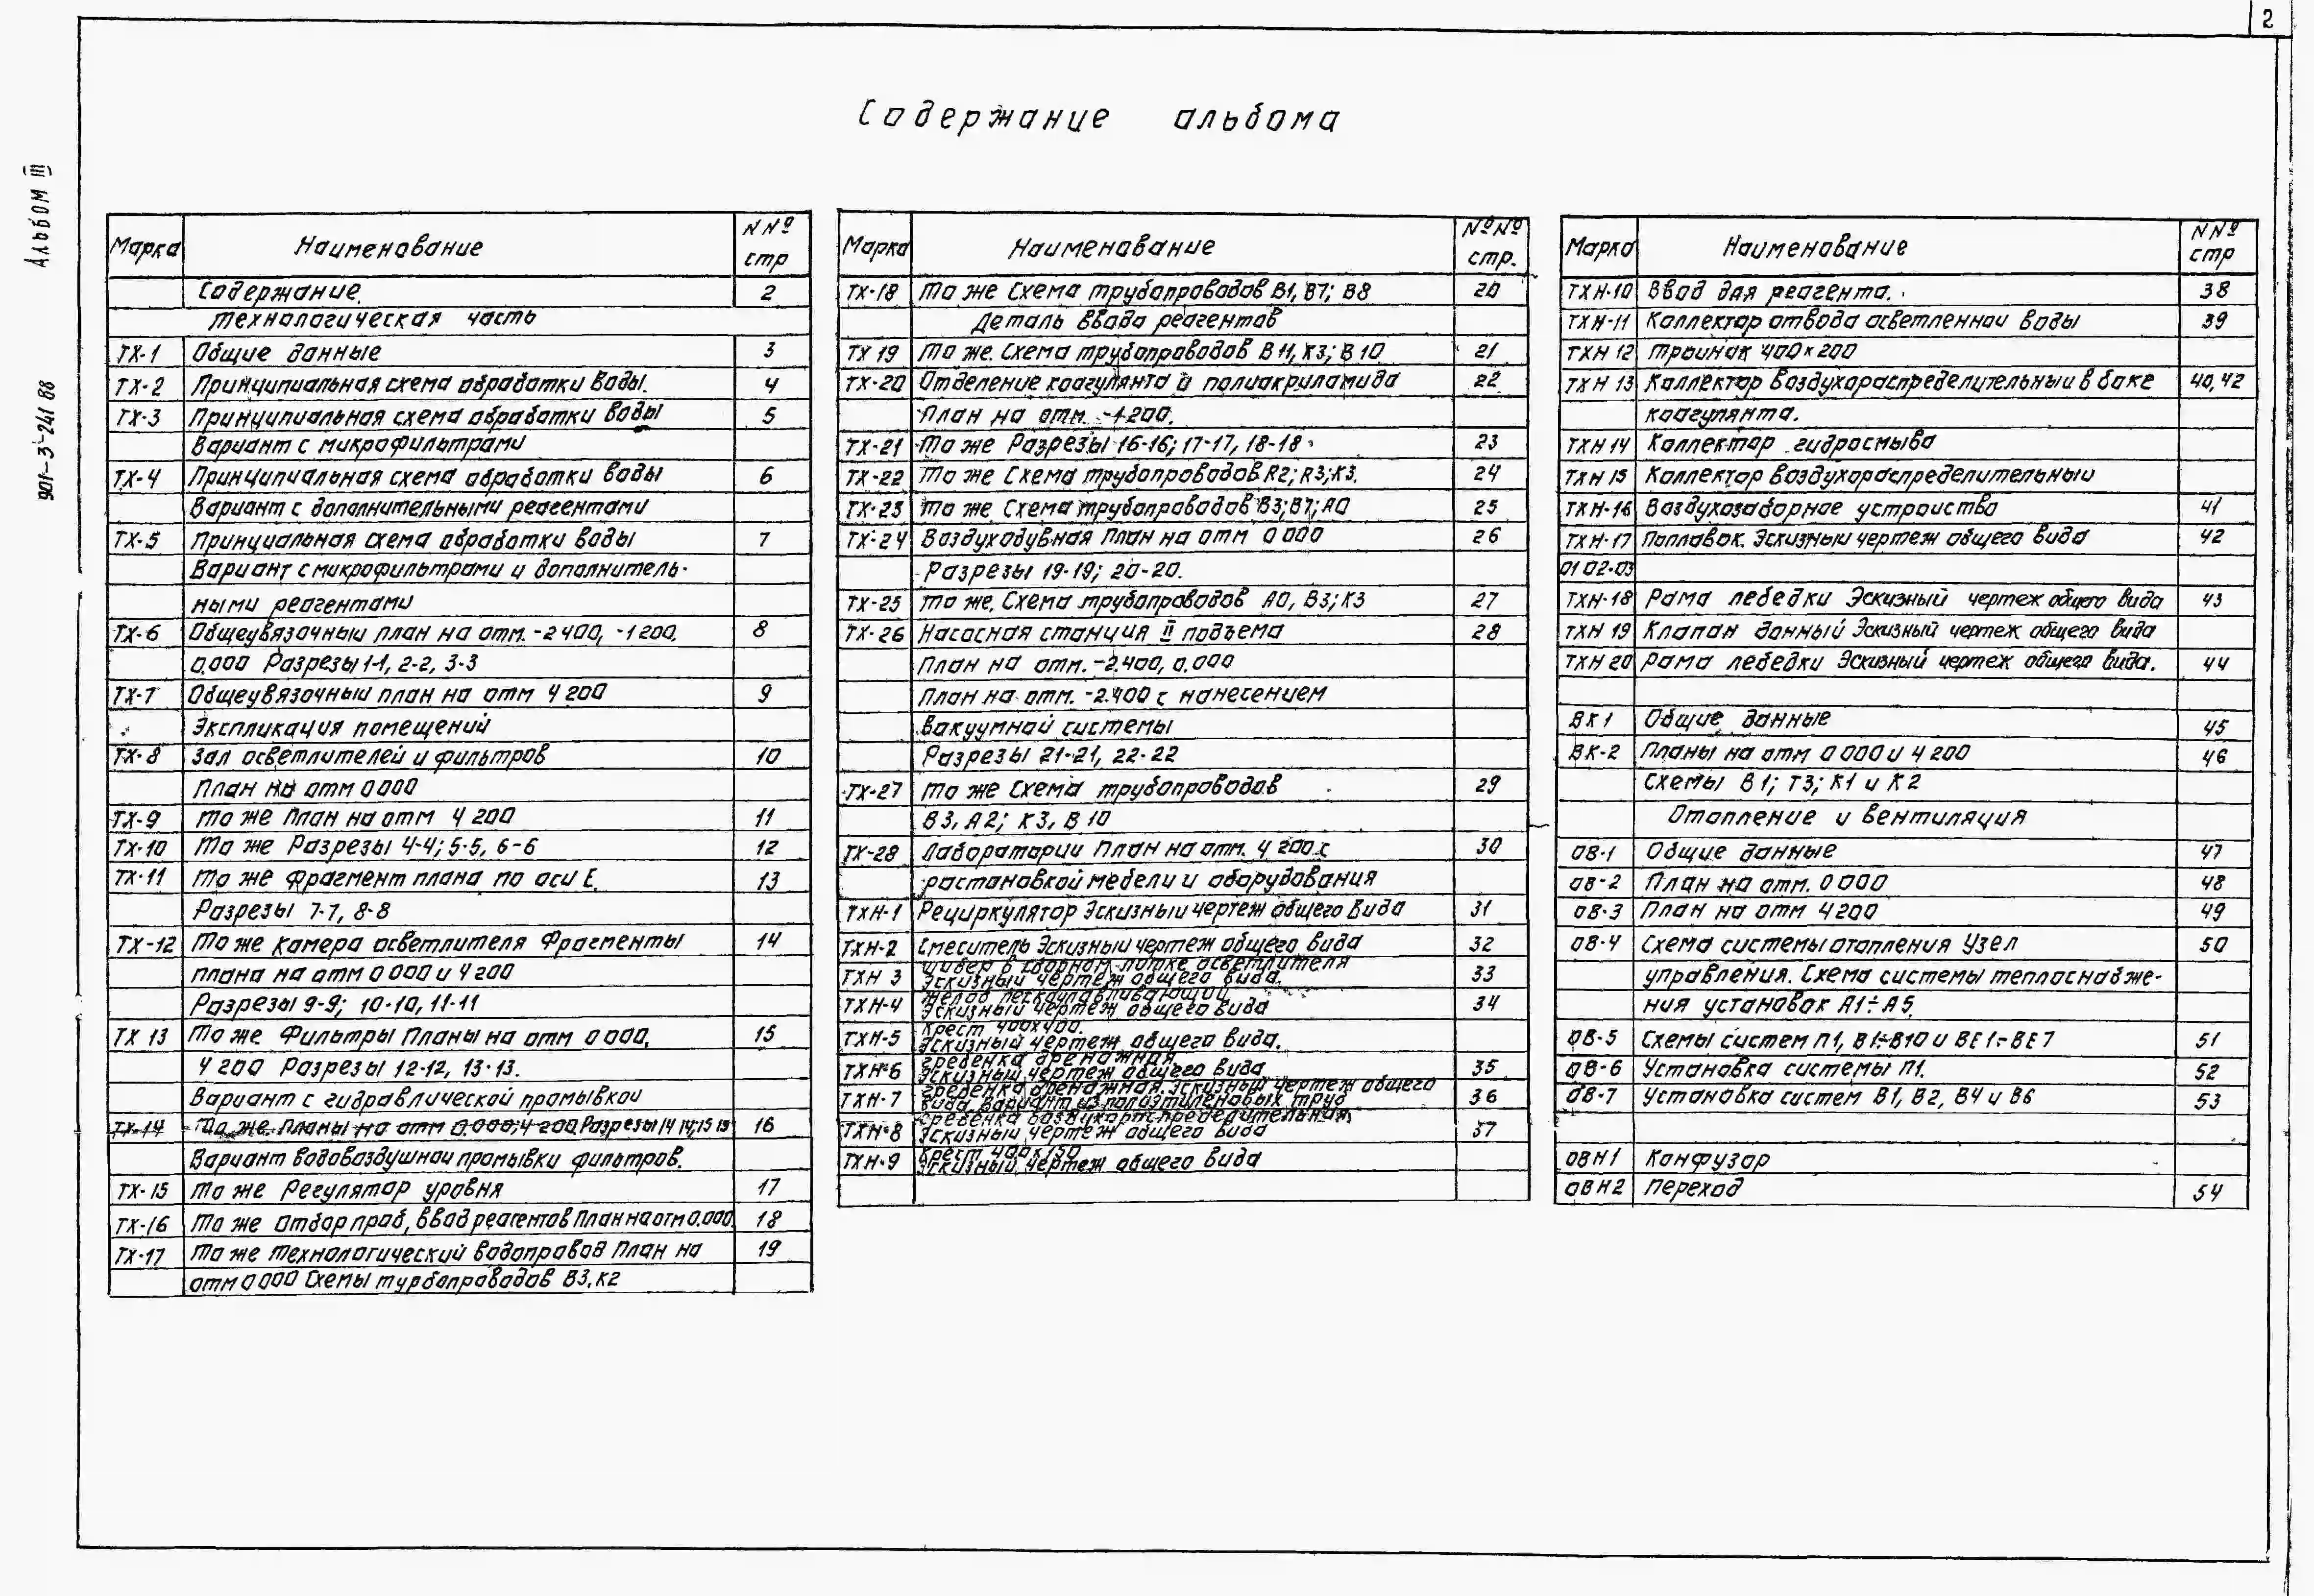 2
Содержание альбома
Альбом III
901-3-241 88
Марка Наименование NNº стр
Содержание. 2
Технологическая часть
ТХ-1 Общие данные 3
ТХ-2 Принципиальная схема обработки воды. 4
ТХ-3 Принципиальная схема обработки воды 5
Вариант с микрофильтрами
ТХ-4 Принципиальная схема обработки воды 6
Вариант с дополнительными реагентами
ТХ-5 Принциальная схема обработки воды 7
Вариант с микрофильтрами и дополнитель-
ными реагентами
ТХ-6 Общеувязочный план на отм. -2 400, -1 200, 8
0.000 Разрезы 1-1, 2-2, 3-3
ТХ-7 Общеувязочный план на отм 4 200 9
Экспликация помещений
ТХ-8 Зал осветлителей и фильтров 10
План на отм 0 000
ТХ-9 То же План на отм 4 200 11
ТХ-10 То же Разрезы 4-4; 5-5, 6-6 12
ТХ-11 То же фрагмент плана по оси Е. 13
Разрезы 7-7, 8-8
ТХ-12 То же Камера осветлителя Фрагменты 14
плана на отм 0 000 и 4 200
Разрезы 9-9; 10-10, 11-11
ТХ 13 То же Фильтры Планы на отм 0 000, 15
4 200 Разрезы 12-12, 13-13.
Вариант с гидравлической промывкой
ТХ-14 То же. Планы на отм 0.000; 4 200 Разрезы 14 14; 15 15 16
Вариант водовоздушной промывки фильтров.
ТХ-15 То же Регулятор уровня 17
ТХ-16 То же Отбор проб, ввод реагентов План на отм 0.000. 18
ТХ-17 То же Технологический водопровод План на 19
отм 0 000 Схемы турбопроводов В3, К2
Марка Наименование NºNº стр.
ТХ-18 То же Схема трубопроводов В1, В7; В8 20
Деталь ввода реагентов
ТХ 19 То же. Схема трубопроводов В11, К3; В10 21
ТХ-20 Отделение коагулянта и полиакриламида 22
План на отм. -1.200.
ТХ-21 То же Разрезы 16-16; 17-17, 18-18 23
ТХ-22 То же Схема трубопроводов R2; R3; К3. 24
ТХ-23 То же. Схема трубопроводов В3; В7; А0 25
ТХ-24 Воздуходувная План на отм 0 000 26
Разрезы 19-19; 20-20.
ТХ-25 То же. Схема трубопроводов А0, В3; К3 27
ТХ-26 Насосная станция II подъема 28
План на отм. -2.400, 0.000
План на отм. -2.400 с нанесением
вакуумной системы
Разрезы 21-21, 22-22
ТХ-27 То же Схема трубопроводов 29
В3, А2; К3, В10
ТХ-28 Лаборатории План на отм. 4 200 с 30
растановкой мебели и оборудования
ТХН-1 Рециркулятор Эскизный чертеж общего вида 31
ТХН-2 Смеситель Эскизный чертеж общего вида 32
ТХН 3 Шибер в сборном лотке осветлителя
Эскизный чертеж общего вида. 33
ТХН-4 Желоб пескоулавливающий
Эскизный чертеж общего вида 34
ТХН-5 Крест 400х400.
Эскизный чертеж общего вида.
ТХН-6 Гребенка дренажная.
Эскизный чертеж общего вида 35
ТХН-7 Гребенка дренажная. Эскизный чертеж общего
вида вариант из полиэтиленовых труб 36
ТХН-8 Гребенка воздухораспределительная.
Эскизный чертеж общего вида 37
ТХН-9 Крест 400х150
Эскизный чертеж общего вида
Марка Наименование NNº стр
ТХН-10 Ввод для реагента. 38
ТХН-11 Коллектор отвода осветленной воды 39
ТХН 12 Тройник 400х200
ТХН 13 Коллектор воздухораспределительный в баке 40, 42
коагулянта.
ТХН 14 Коллектор гидросмыва
ТХН 15 Коллектор воздухораспределительный
ТХН-16 Воздухозаборное устройство 41
ТХН-17 Поплавок. Эскизный чертеж общего вида 42
01 02-03
ТХН-18 Рама лебедки Эскизный чертеж общего вида 43
ТХН 19 Клапан донный Эскизный чертеж общего вида
ТХН 20 Рама лебедки Эскизный чертеж общего вида. 44
ВК 1 Общие данные 45
ВК-2 Планы на отм 0 000 и 4 200 46
Схемы В1; Т3; К1 и К2
Отопление и вентиляция
ОВ-1 Общие данные 47
ОВ-2 План на отм. 0 000 48
ОВ-3 План на отм 4 200 49
ОВ-4 Схема системы отопления Узел 50
управления. Схема системы теплоснабже-
ния установок А1÷А5.
ОВ-5 Схемы систем П1, В1÷В10 и ВЕ1÷ВЕ7 51
ОВ-6 Установка системы П1. 52
ОВ-7 Установка систем В1, В2, В4 и В6 53
ОВН1 Конфузор
ОВН2 Переход 54